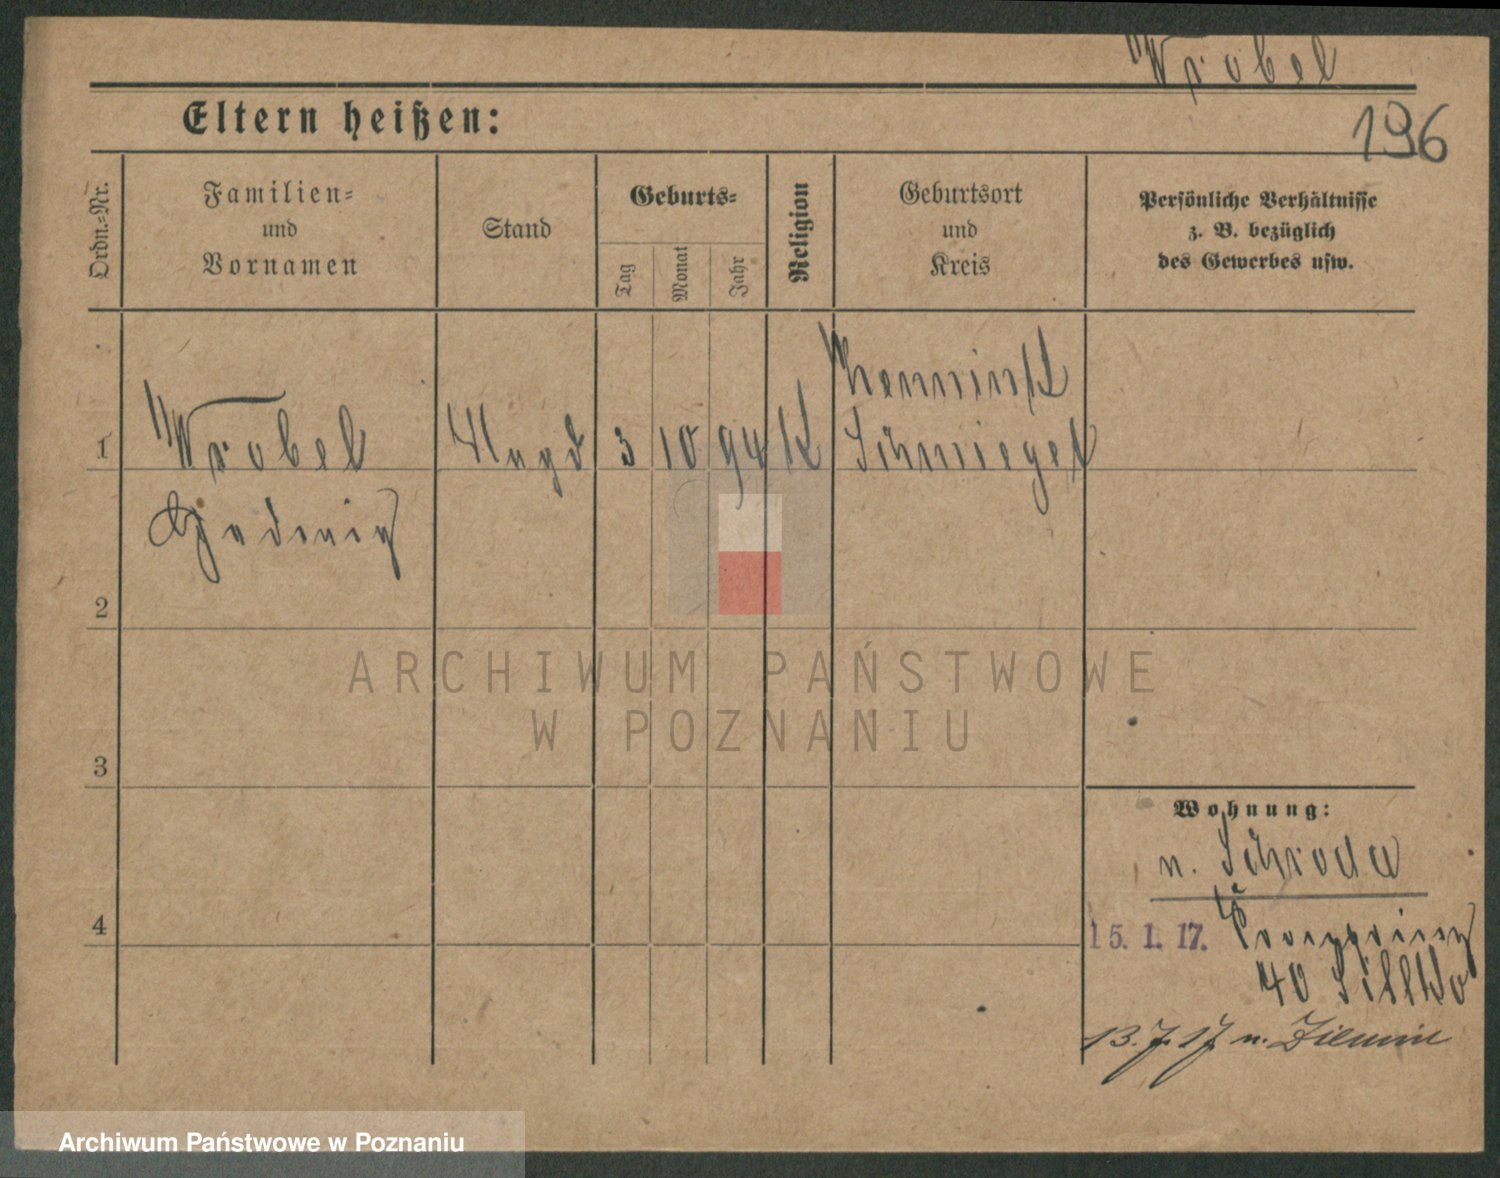 Wrobel
196
Eltern heißen:
Ordn.=Nr.
Familien=
und
Vornamen
Stand
Geburts=
Tag
Monat
Jahr
Religion
Geburtsort
und
Kreis
Persönliche Verhältnisse
z. B. bezüglich
des Gewerbes usw.
1
Wrobel
Magd
3
10
94
K
Schmiegel
Hedwig
2
ARCHIWUM PAŃSTWOWE
W POZNANIU
3
Wohnung:
n. Schroda
4
15. 1. 17. Kronprinz
40
13. 7. 17 n.
Archiwum Państwowe w Poznaniu